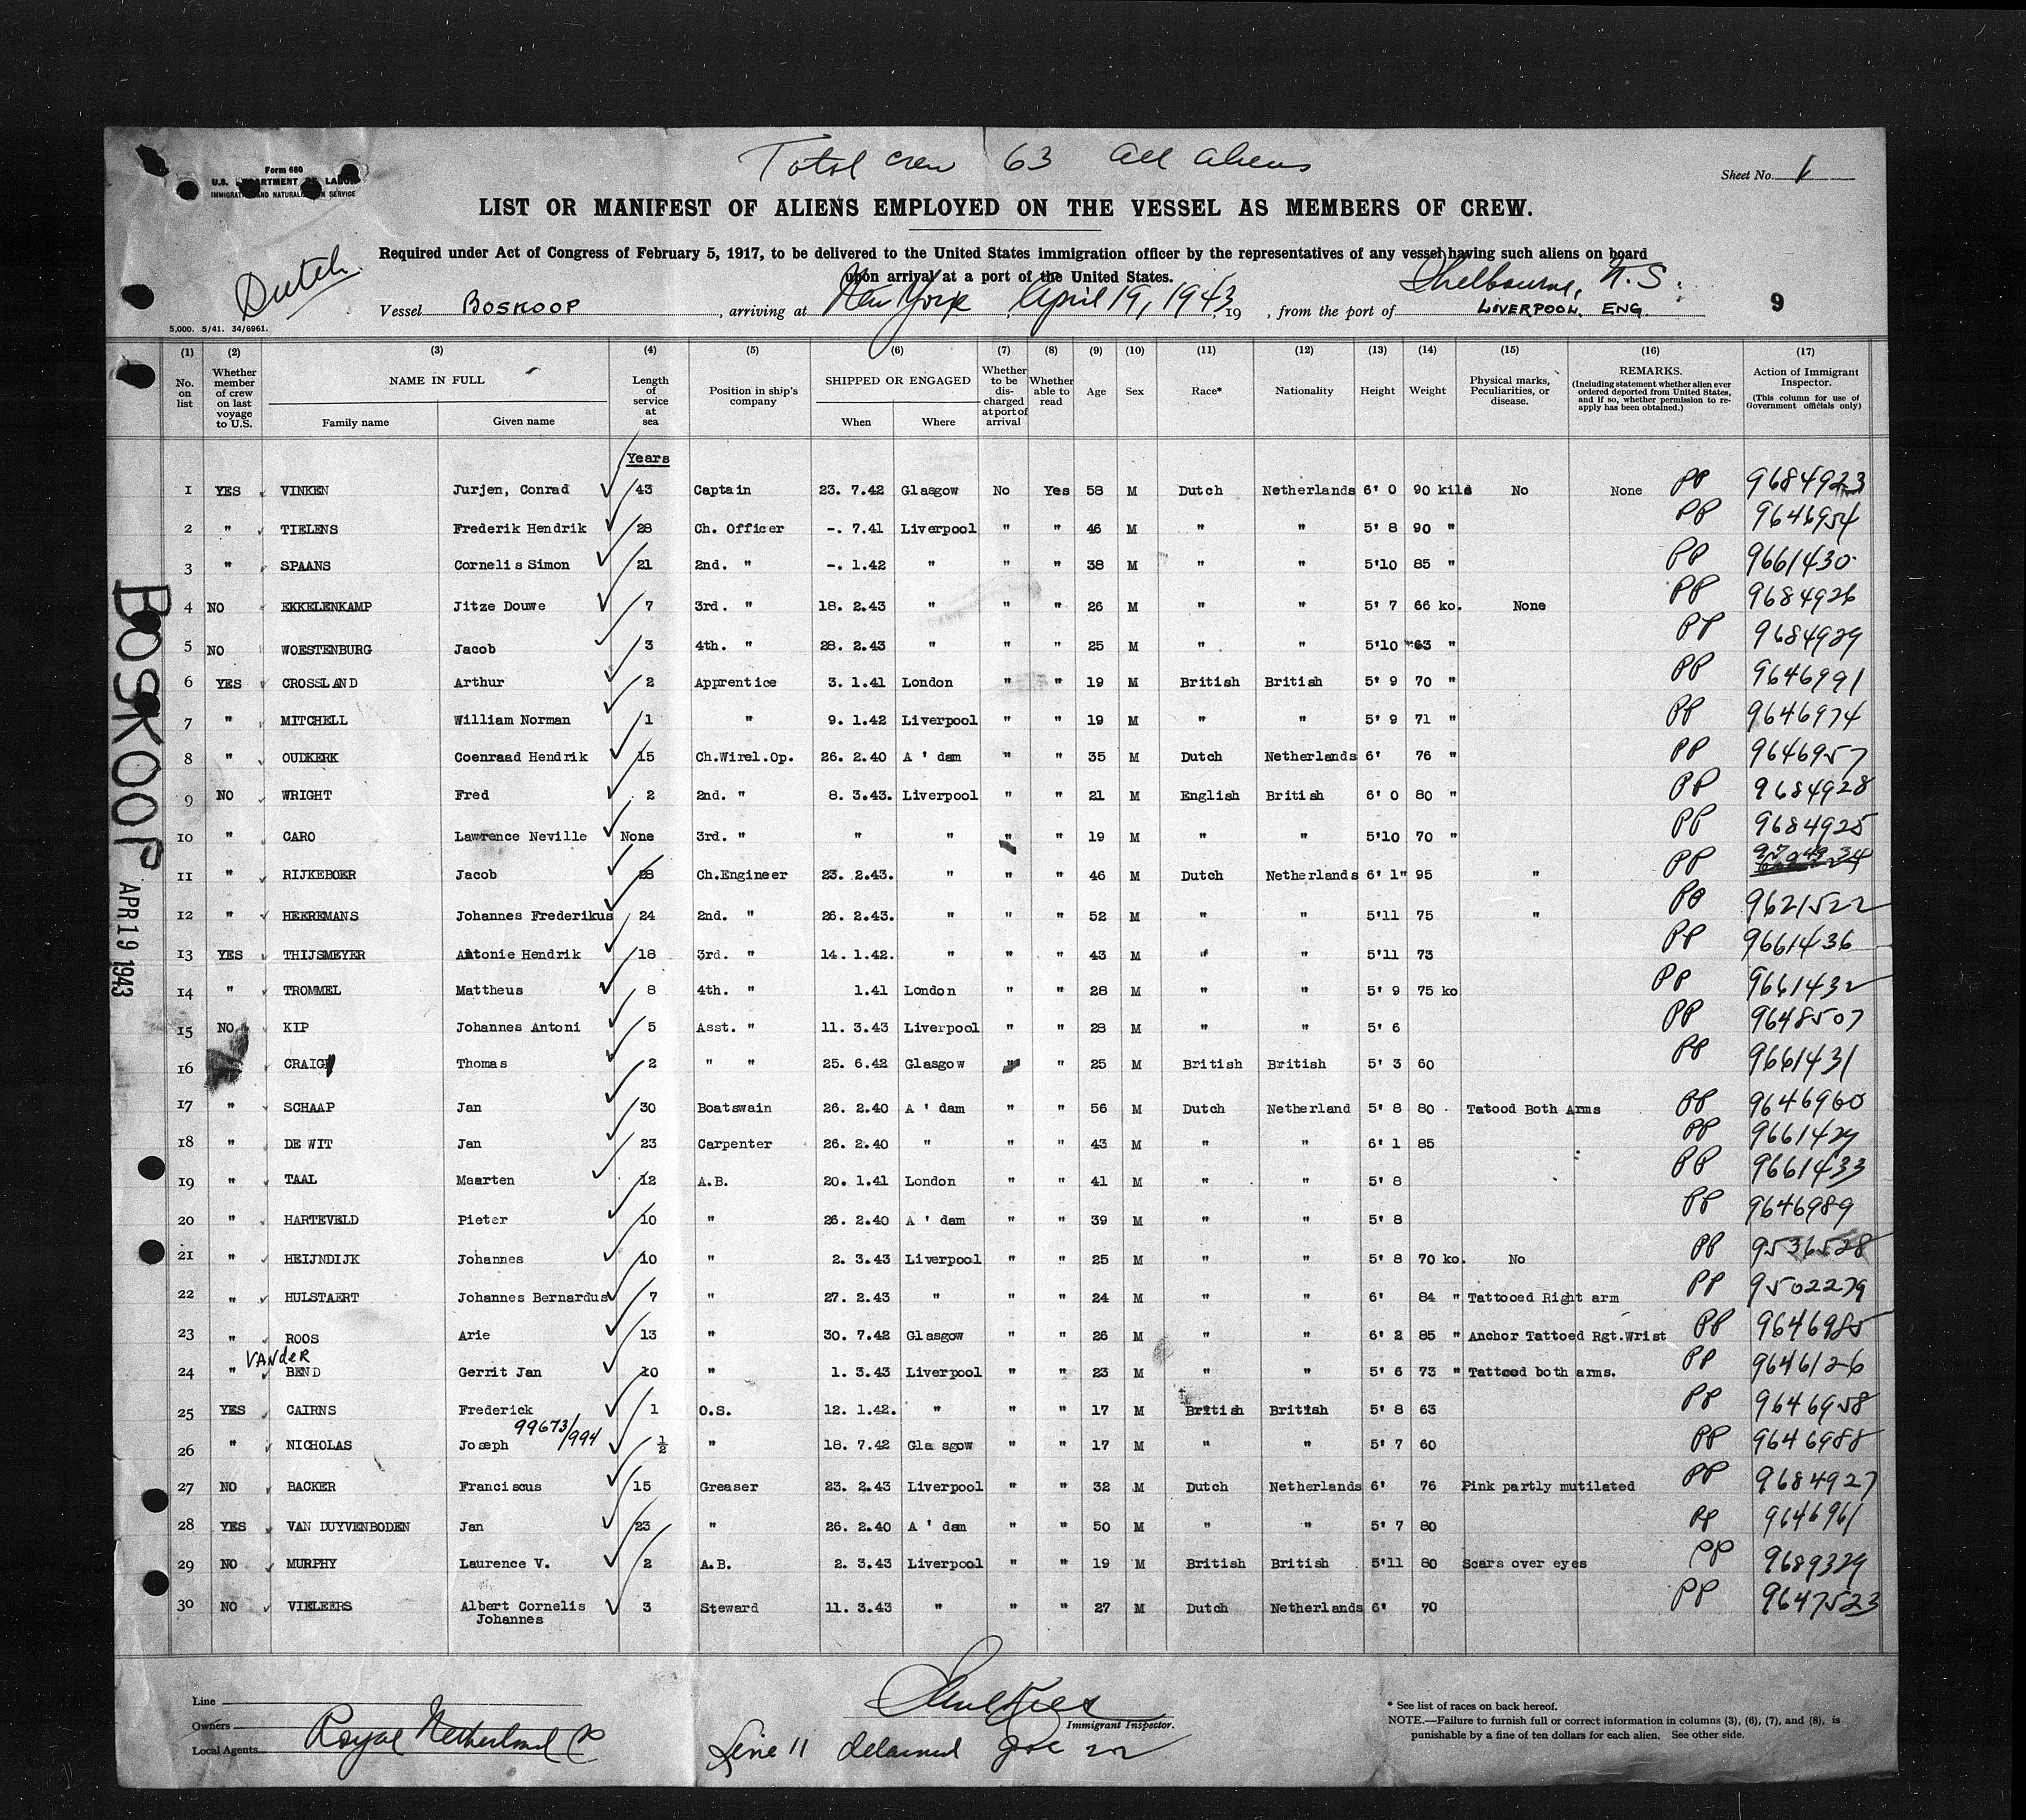 Total crew 63 all aliens
Form 680
U.S. DEPARTMENT OF LABOR
IMMIGRATION AND NATURALIZATION SERVICE
Sheet No. 1
LIST OR MANIFEST OF ALIENS EMPLOYED ON THE VESSEL AS MEMBERS OF CREW.
Required under Act of Congress of February 5, 1917, to be delivered to the United States immigration officer by the representatives of any vessel having such aliens on board
upon arrival at a port of the United States.
Dutch
Shelbourne, N.S.
Vessel BOSKOOP, arriving at New York, April 19, 1943, 19 , from the port of LIVERPOOL. ENG. 9
5,000. 5/41. 34/6961.
(1) (2) (3) (4) (5) (6) (7) (8) (9) (10) (11) (12) (13) (14) (15) (16) (17)
No. on list
Whether member of crew on last voyage to U.S.
NAME IN FULL
Family name Given name
Length of service at sea
Position in ship's company
SHIPPED OR ENGAGED
When Where
Whether to be discharged at port of arrival
Whether able to read
Age Sex Race* Nationality Height Weight
Physical marks, Peculiarities, or disease.
REMARKS.
(Including statement whether alien ever ordered deported from United States, and if so, whether permission to re-apply has been obtained.)
Action of Immigrant Inspector.
(This column for use of Government officials only)
Years
1 YES VINKEN Jurjen, Conrad 43 Captain 23. 7.42 Glasgow No Yes 58 M Dutch Netherlands 6' 0 90 kils No None PP 9684923
2 " TIELENS Frederik Hendrik 28 Ch. Officer -. 7.41 Liverpool " " 46 M " " 5' 8 90 " PP 9646954
3 " SPAANS Cornelis Simon 21 2nd. " -. 1.42 " " " 38 M " " 5'10 85 " PP 9661430
4 NO EKKELENKAMP Jitze Douwe 7 3rd. " 18. 2.43 " " " 26 M " " 5' 7 66 ko. None PP 9684926
5 NO WOESTENBURG Jacob 3 4th. " 28. 2.43 " " " 25 M " " 5'10 63 " PP 9684929
6 YES CROSSLAND Arthur 2 Apprentice 3. 1.41 London " " 19 M British British 5' 9 70 " PP 9646991
7 " MITCHELL William Norman 1 " 9. 1.42 Liverpool " " 19 M " " 5' 9 71 " PP 9646974
8 " OUDKERK Coenraad Hendrik 15 Ch.Wirel.Op. 26. 2.40 A ' dam " " 35 M Dutch Netherlands 6' 76 " PP 9646957
9 NO WRIGHT Fred 2 2nd. " 8. 3.43. Liverpool " " 21 M English British 6' 0 80 " PP 9684928
10 " CARO Lawrence Neville None 3rd. " " " " " 19 M " " 5'10 70 " PP 9684925
11 " RIJKEBOER Jacob 28 Ch.Engineer 23. 2.43. " " " 46 M Dutch Netherlands 6' 1" 95 " PP
12 " HEEREMANS Johannes Frederikus 24 2nd. " 26. 2.43. " " " 52 M " " 5'11 75 " PP 9621522
13 YES THIJSMEYER Antonie Hendrik 18 3rd. " 14. 1.42. " " " 43 M " " 5'11 73 PP 9661436
14 " TROMMEL Mattheus 8 4th. " 1.41 London " " 28 M " " 5' 9 75 ko PP 9661432
15 NO KIP Johannes Antoni 5 Asst. " 11. 3.43 Liverpool " " 28 M " " 5' 6 PP 9648507
16 CRAIG Thomas 2 " " 25. 6.42 Glasgow " " 25 M British British 5' 3 60 PP 9661431
17 " SCHAAP Jan 30 Boatswain 26. 2.40 A ' dam " " 56 M Dutch Netherland 5' 8 80 Tatood Both Arms PP 9646960
18 " DE WIT Jan 23 Carpenter 26. 2.40 " " " 43 M " " 6' 1 85 PP 9661429
19 " TAAL Maarten 12 A.B. 20. 1.41 London " " 41 M " " 5' 8 PP 9661433
20 " HARTEVELD Pieter 10 " 26. 2.40 A ' dam " " 39 M " " 5' 8 PP 9646989
21 " HEIJNDIJK Johannes 10 " 2. 3.43 Liverpool " " 25 M " " 5' 8 70 ko. No PP 9536528
22 " HULSTAERT Johannes Bernardus 7 " 27. 2.43 " " " 24 M " " 6' 84 " Tattooed Right arm PP 9502279
23 " ROOS Arie 13 " 30. 7.42 Glasgow " " 26 M " " 6' 2 85 " Anchor Tattoed Rgt.Wrist PP 9646985
24 " VANdeR BEND Gerrit Jan 10 " 1. 3.43 Liverpool " " 23 M " " 5' 6 73 " Tattooed both arms. PP 9646126
25 YES CAIRNS Frederick 1 O.S. 12. 1.42. " " " 17 M British British 5' 8 63 PP 9646958
26 " NICHOLAS Joseph 99673/994 ½ " 18. 7.42 Glasgow " " 17 M " " 5' 7 60 PP 9646988
27 NO BACKER Franciscus 15 Greaser 23. 2.43 Liverpool " " 32 M Dutch Netherlands 6' 76 Pink partly mutilated PP 9684927
28 YES VAN DUYVENBODEN Jan 23 " 26. 2.40 A ' dam " " 50 M " " 5' 7 80 PP 9646961
29 NO MURPHY Laurence V. 2 A.B. 2. 3.43 Liverpool " " 19 M British British 5'11 80 Scars over eyes PP 9689329
30 NO VIELEERS Albert Cornelis Johannes 3 Steward 11. 3.43 " " " 27 M Dutch Netherlands 6' 70 PP 9647523
BOSKOOP APR 19 1943
Line
Owners
Local Agents Royal Netherland
Immigrant Inspector.
Line 11 detained
* See list of races on back hereof.
NOTE.—Failure to furnish full or correct information in columns (3), (6), (7), and (8), is
punishable by a fine of ten dollars for each alien. See other side.